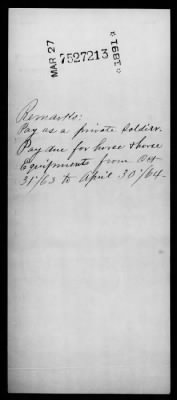 MAR 27 7527213 1891
Remarks:
Pay as a private Soldier.
Pay due for horse & horse
Equipments from Oct
31/63 to April 30/64.